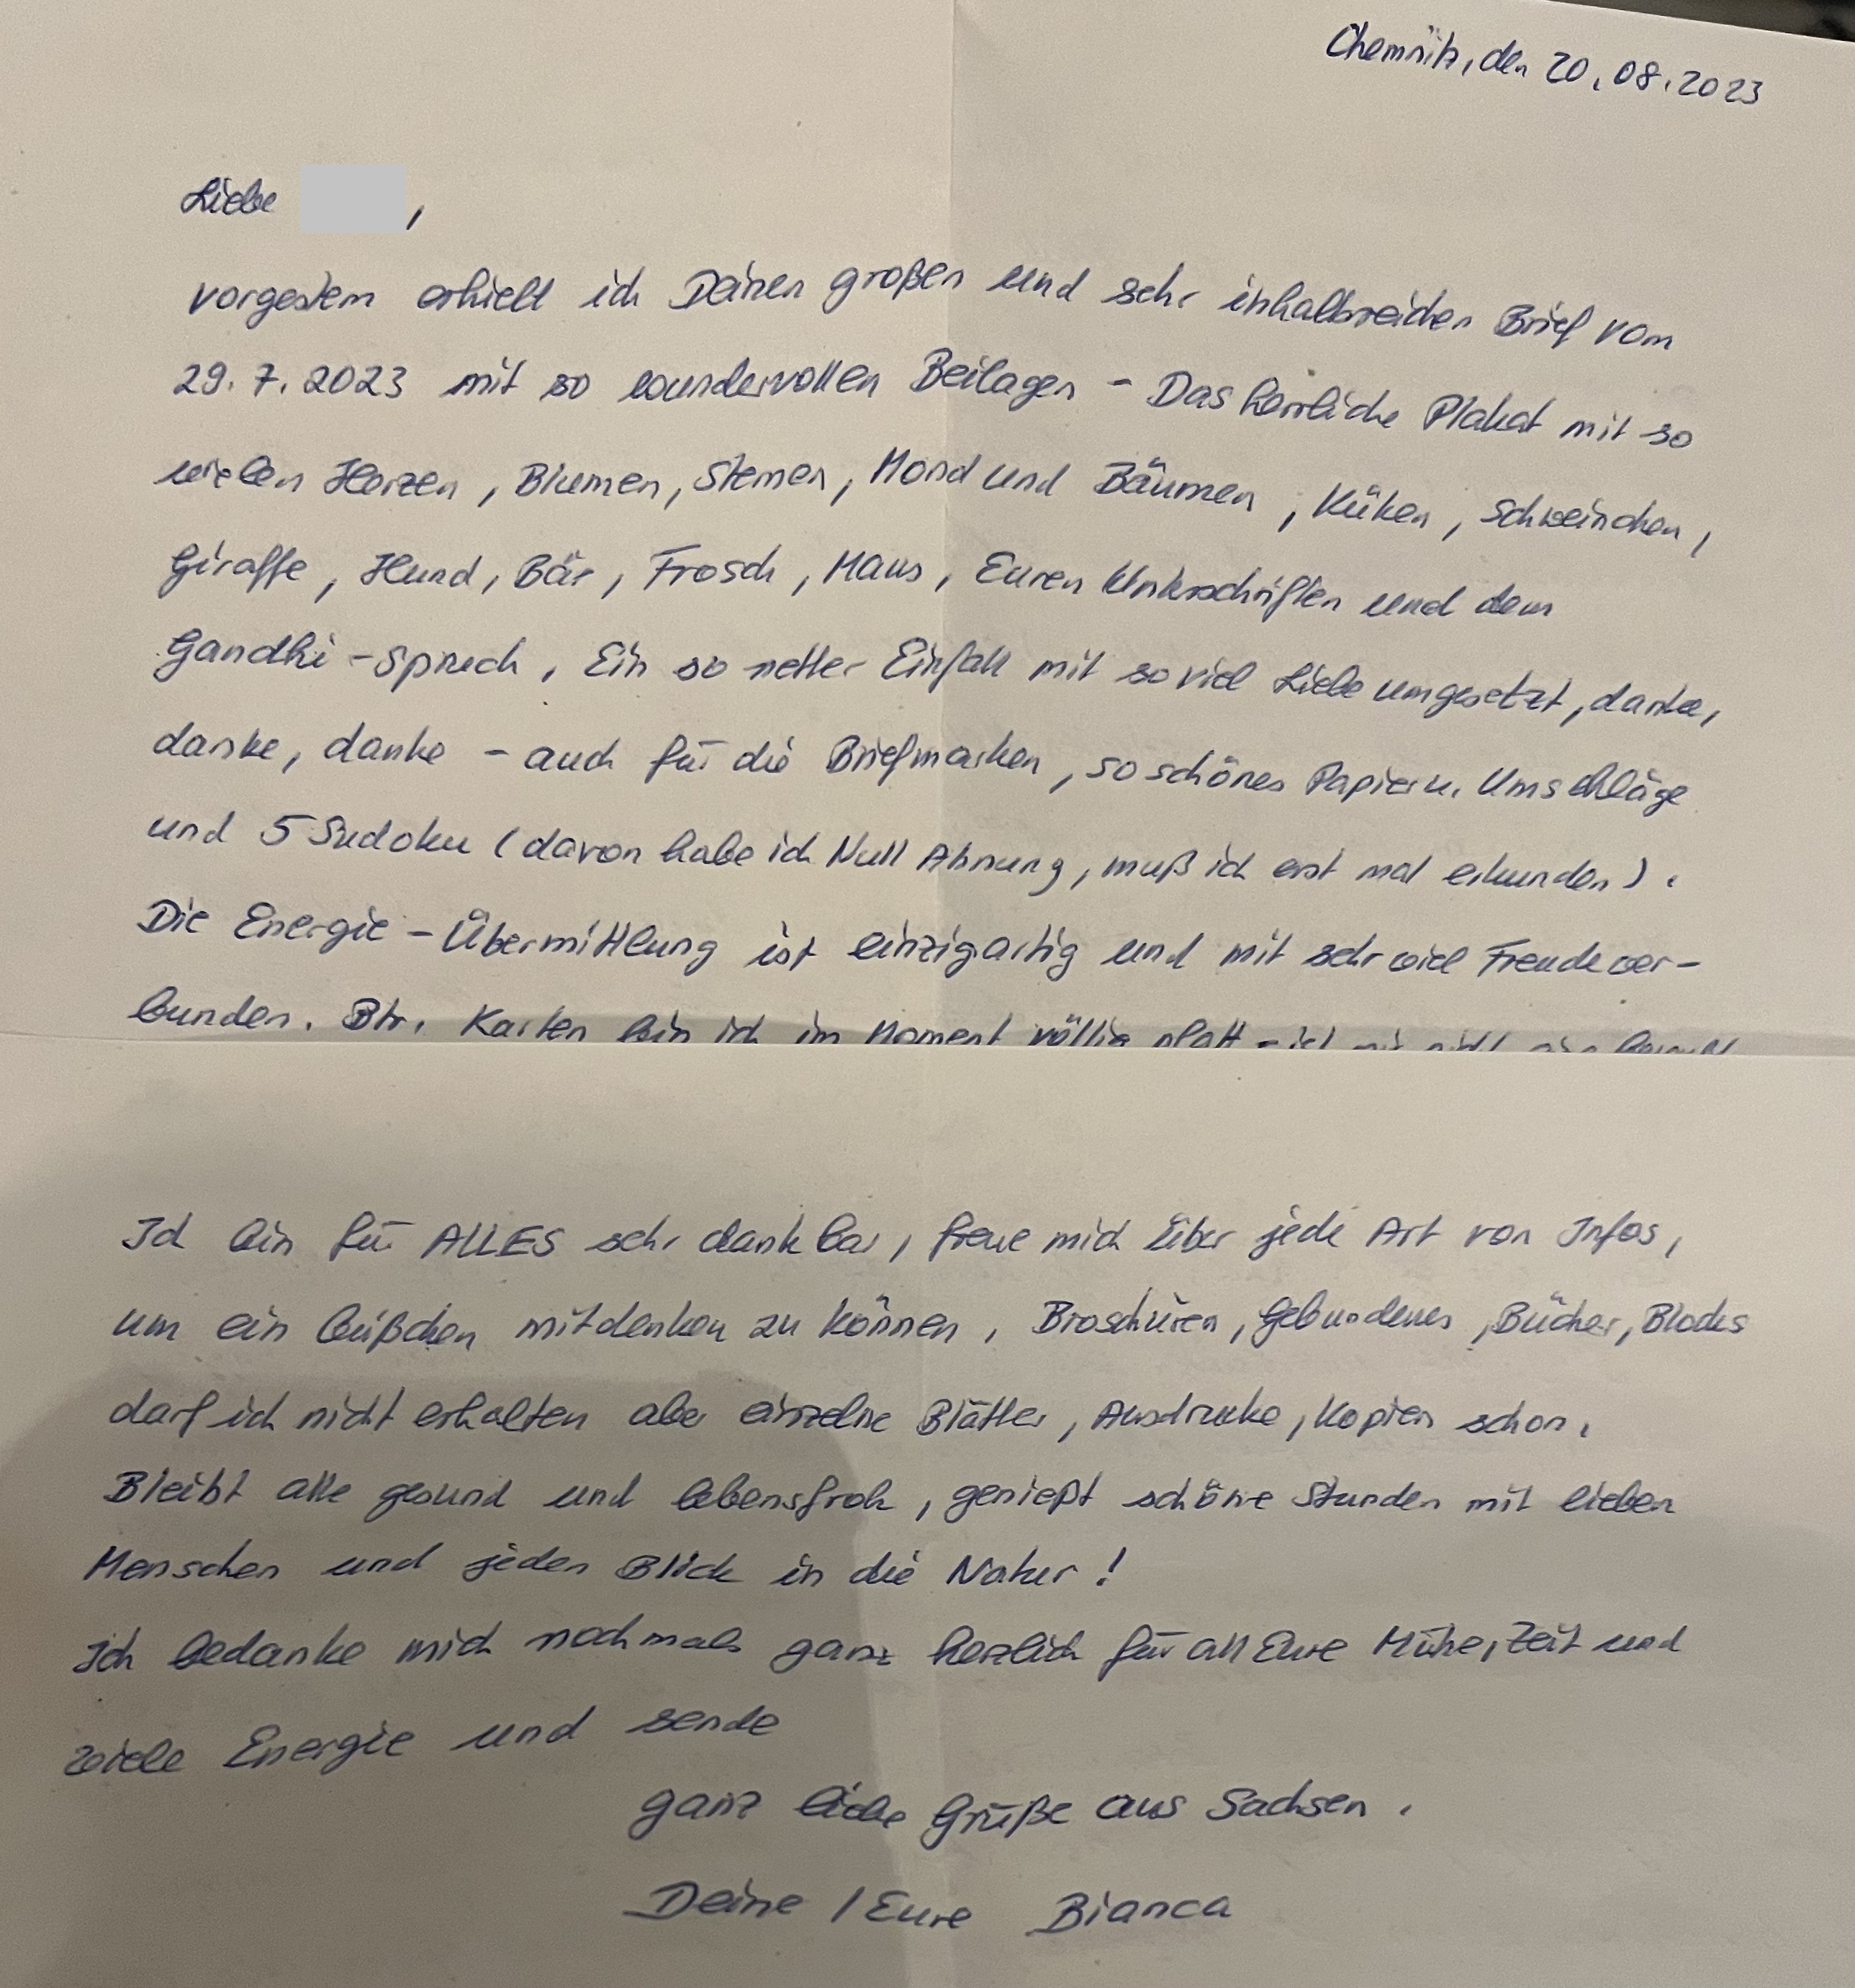 Chemnitz, den 20.08.2023
Liebe ,
vorgestern erhielt ich Deinen großen und sehr inhaltsreichen Brief vom
29.7.2023 mit so wundervollen Beilagen - Das herrliche Plakat mit so
vielen Herzen, Blumen, Sternen, Mond und Bäumen, Küken, Schweinchen,
Giraffe, Hund, Bär, Frosch, Maus, Euren Unterschriften und dem
Gandhi-Spruch. Ein so netter Einfall mit soviel Liebe umgesetzt, danke,
danke, danke - auch für die Briefmarken, so schönes Papier u. Umschläge
und 5 Sudoku (davon habe ich Null Ahnung, muß ich erst mal erkunden).
Die Energie-Übermittlung ist einzigartig und mit sehr viel Freude ver-
bunden. Btr. Karten bin ich im Moment völlig platt -
Ich bin für ALLES sehr dankbar, freue mich über jede Art von Infos,
um ein bißchen mitdenken zu können. Broschüren, Gebundenes, Bücher, Blocks
darf ich nicht erhalten aber einzelne Blätter, Ausdrucke, Kopien schon.
Bleibt alle gesund und lebensfroh, genießt schöne Stunden mit lieben
Menschen und jeden Blick in die Natur!
Ich bedanke mich nochmals ganz herzlich für all Eure Mühe, Zeit und
viele Energie und sende
ganz liebe Grüße aus Sachsen.
Deine / Eure Bianca